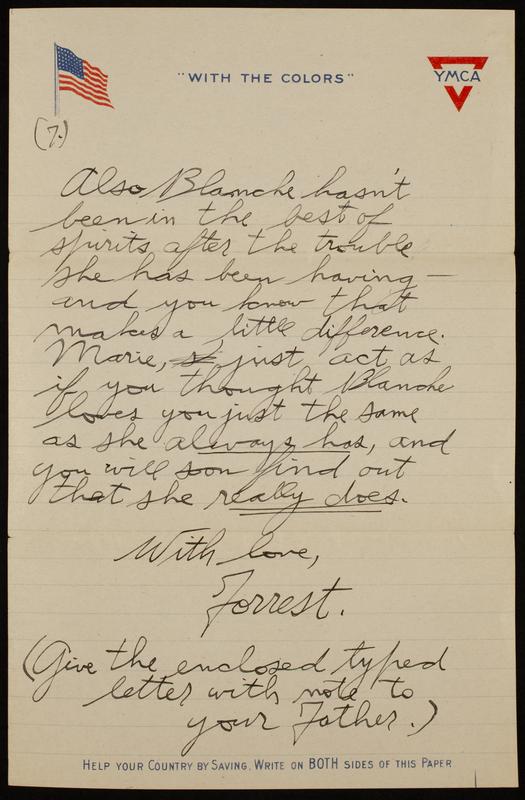 "WITH THE COLORS"
YMCA
(7.)
Also Blanche hasn't
been in the best of
spirits after the trouble
she has been having —
and you know that
makes a little difference.
Marie, just act as
if you thought Blanche
loves you just the same
as she always has, and
you will soon find out
that she really does.
With love,
Forrest.
(Give the enclosed typed
letter with note to
your Father.)
HELP YOUR COUNTRY BY SAVING. WRITE ON BOTH SIDES OF THIS PAPER